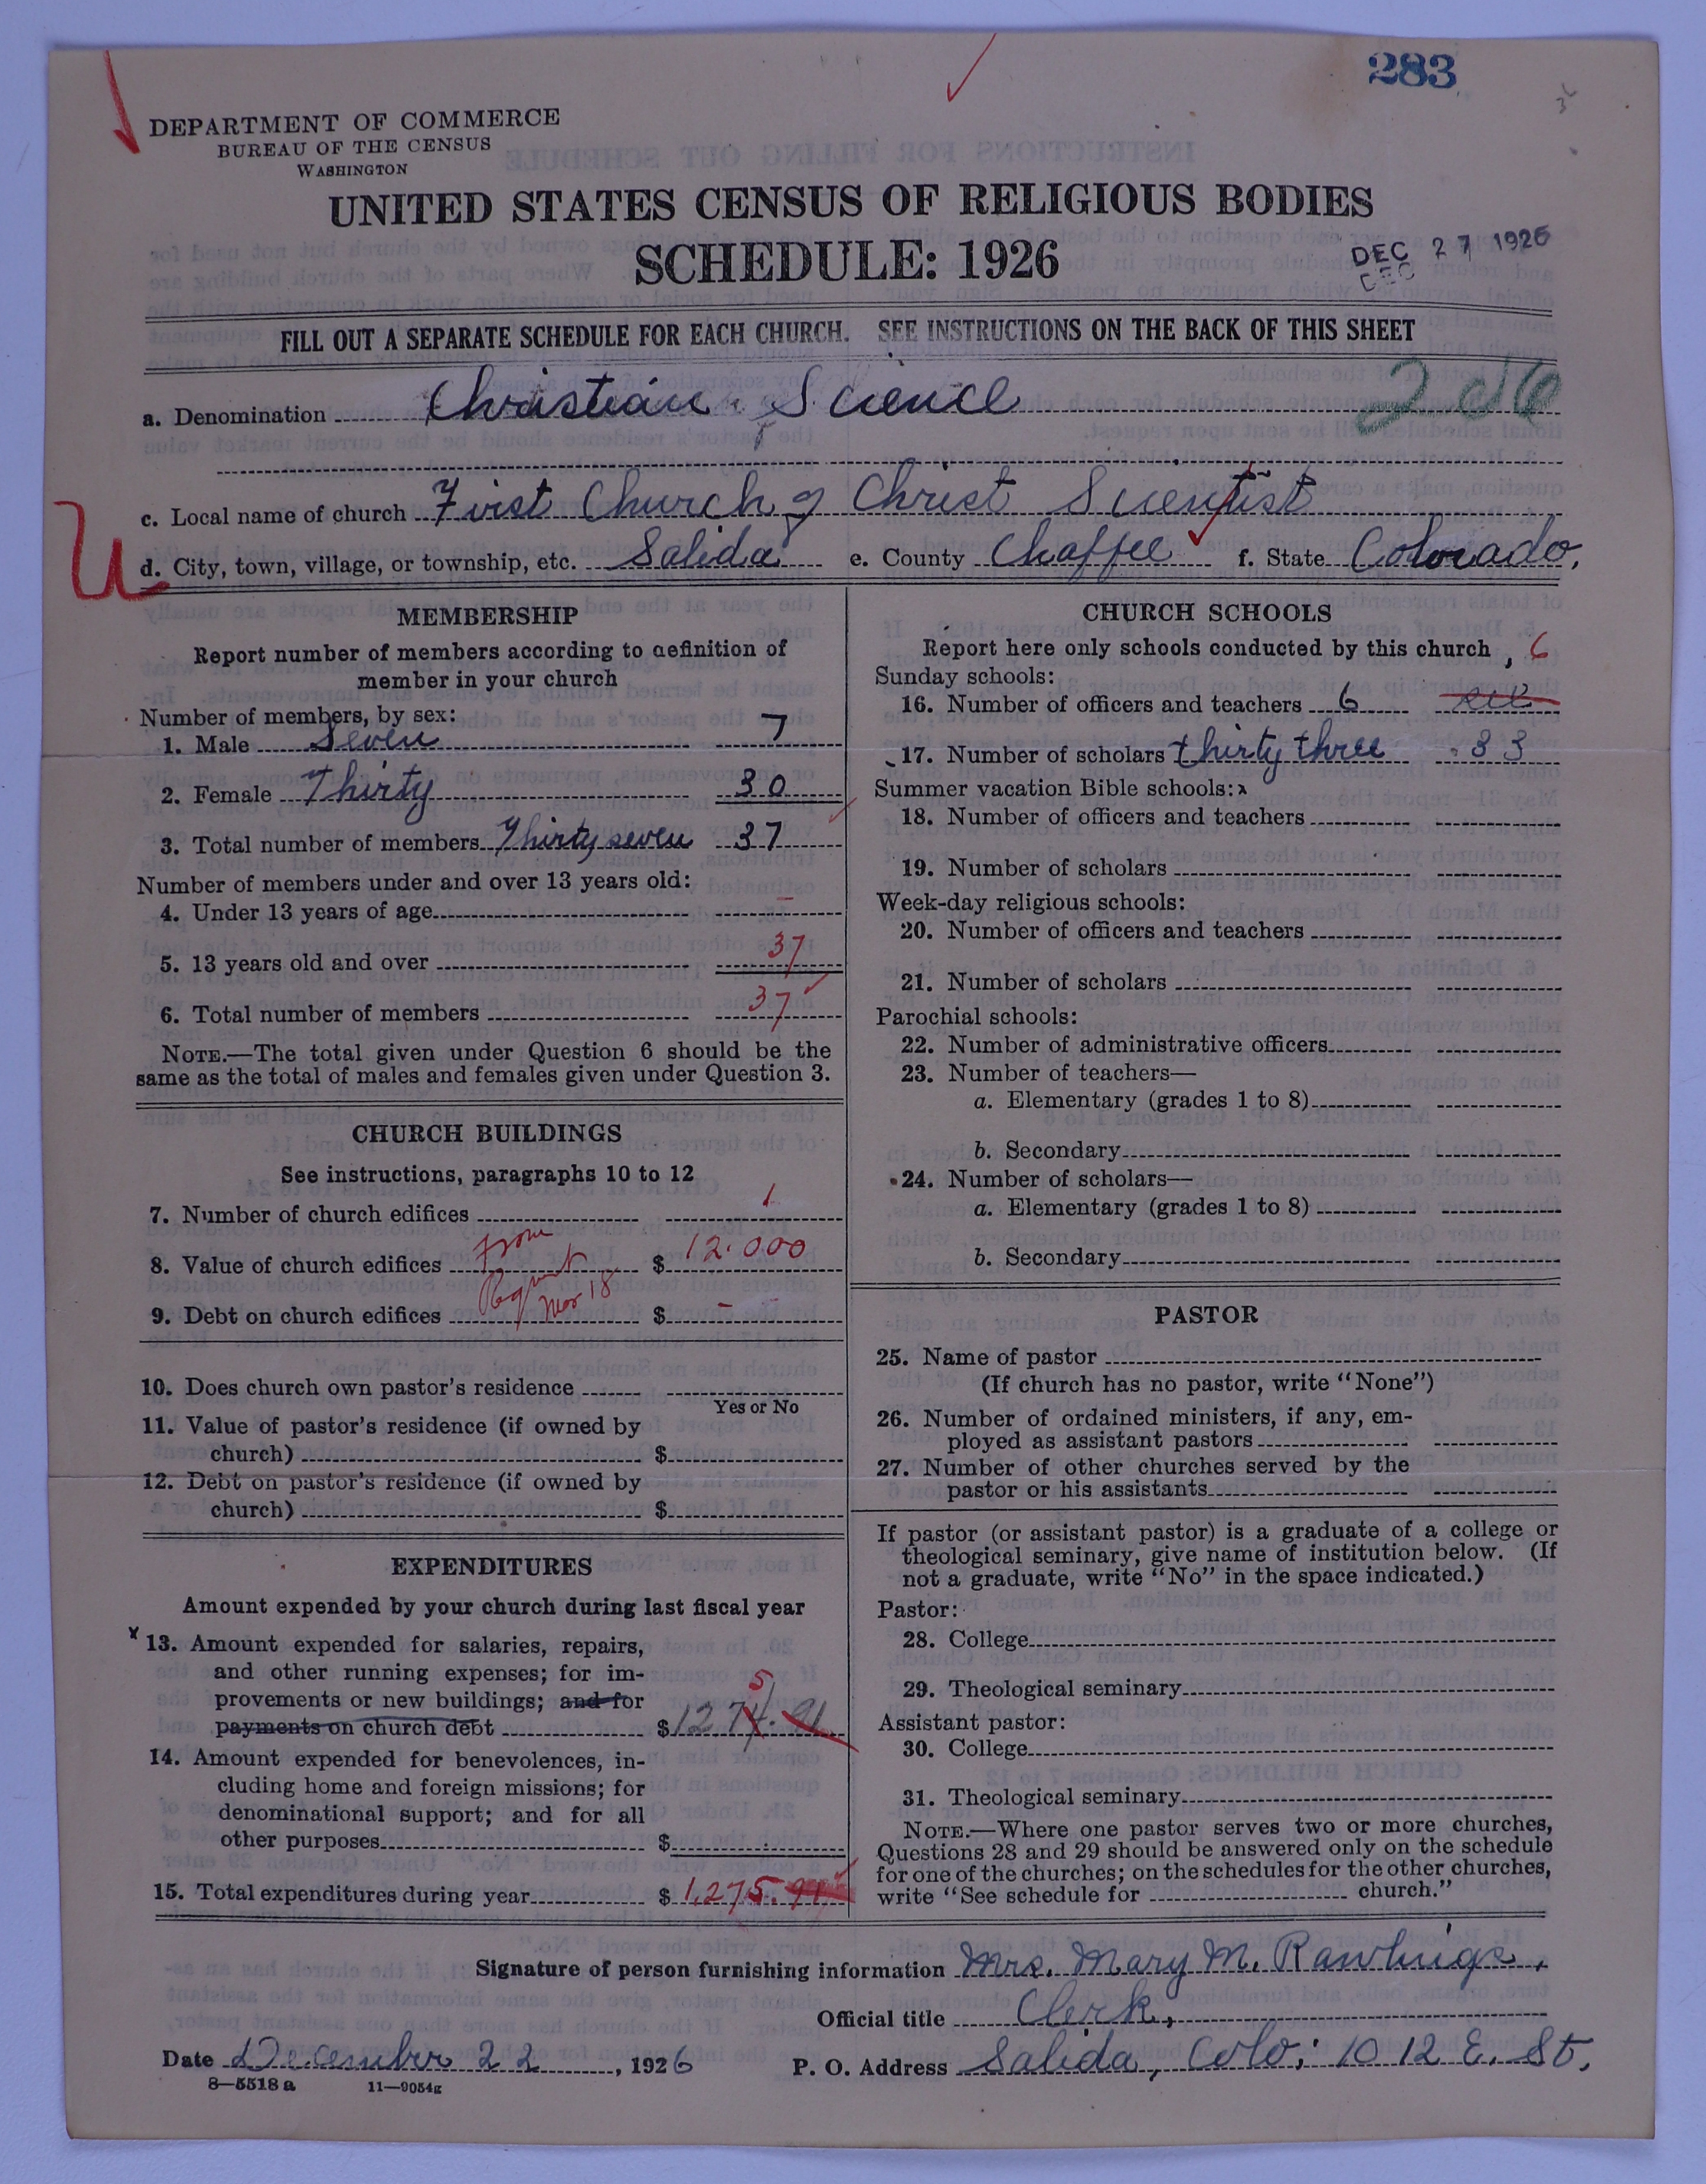 283
DEPARTMENT OF COMMERCE
BUREAU OF THE CENSUS
WASHINGTON
UNITED STATES CENSUS OF RELIGIOUS BODIES
SCHEDULE: 1926
DEC 27 1926
DEC
FILL OUT A SEPARATE SCHEDULE FOR EACH CHURCH. SEE INSTRUCTIONS ON THE BACK OF THIS SHEET
a. Denomination Christian Science
c. Local name of church First Church of Christ Scientist
d. City, town, village, or township, etc. Salida e. County Chaffee f. State Colorado.
MEMBERSHIP
Report number of members according to definition of
member in your church
Number of members, by sex:
1. Male Seven 7
2. Female Thirty 30
3. Total number of members Thirty seven 37
Number of members under and over 13 years old:
4. Under 13 years of age -
5. 13 years old and over 37
6. Total number of members 37
NOTE.—The total given under Question 6 should be the
same as the total of males and females given under Question 3.
CHURCH BUILDINGS
See instructions, paragraphs 10 to 12
7. Number of church edifices 1
8. Value of church edifices From $ 12.000
9. Debt on church edifices Mar 18 $ - -
10. Does church own pastor's residence
Yes or No
11. Value of pastor's residence (if owned by
church) $
12. Debt on pastor's residence (if owned by
church) $
EXPENDITURES
Amount expended by your church during last fiscal year
x 13. Amount expended for salaries, repairs,
and other running expenses; for im-
provements or new buildings; and for 5
payments on church debt $ 1274.91
14. Amount expended for benevolences, in-
cluding home and foreign missions; for
denominational support; and for all
other purposes $
15. Total expenditures during year $ 1,275.91
CHURCH SCHOOLS
Report here only schools conducted by this church 6
Sunday schools:
16. Number of officers and teachers 6
17. Number of scholars thirty three 33
Summer vacation Bible schools:
18. Number of officers and teachers
19. Number of scholars
Week-day religious schools:
20. Number of officers and teachers
21. Number of scholars
Parochial schools:
22. Number of administrative officers
23. Number of teachers—
a. Elementary (grades 1 to 8)
b. Secondary
24. Number of scholars—
a. Elementary (grades 1 to 8)
b. Secondary
PASTOR
25. Name of pastor
(If church has no pastor, write "None")
26. Number of ordained ministers, if any, em-
ployed as assistant pastors
27. Number of other churches served by the
pastor or his assistants
If pastor (or assistant pastor) is a graduate of a college or
theological seminary, give name of institution below. (If
not a graduate, write "No" in the space indicated.)
Pastor:
28. College
29. Theological seminary
Assistant pastor:
30. College
31. Theological seminary
NOTE.—Where one pastor serves two or more churches,
Questions 28 and 29 should be answered only on the schedule
for one of the churches; on the schedules for the other churches,
write "See schedule for church."
Signature of person furnishing information Mrs. Mary M. Rawlings,
Official title Clerk,
Date December 22, 1926 P. O. Address Salida, Colo; 1012 E. St.
8—5518 a 11—9054g